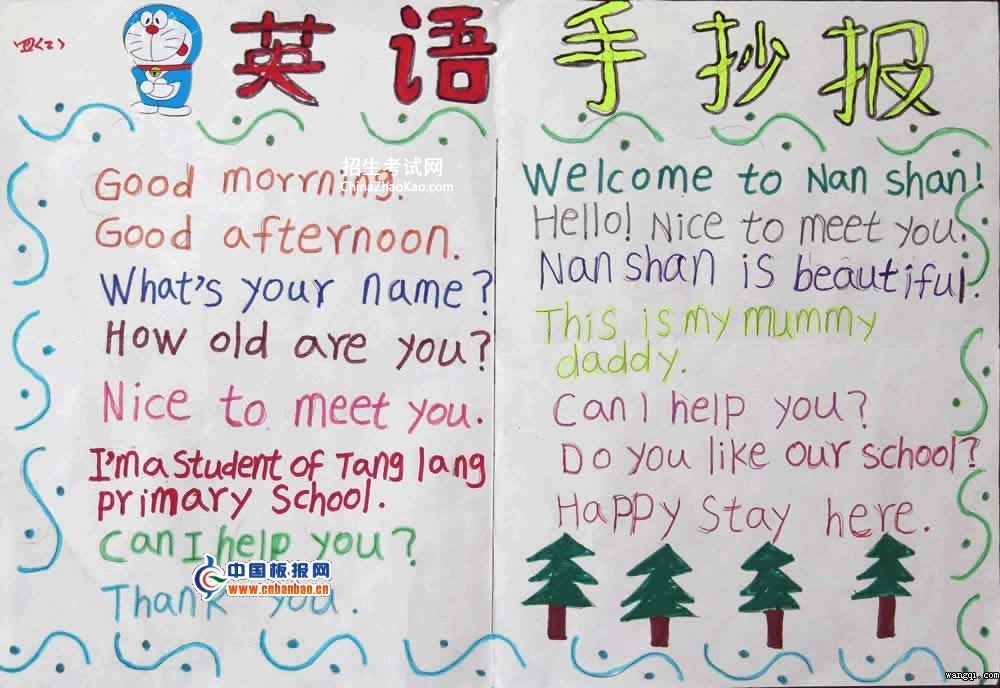 四(2)
英语手抄报
Good morrning.
Good afternoon.
What's your name?
How old are you?
Nice to meet you.
I'm a student of Tang lang
primary school.
Can I help you?
Thank you.
Welcome to Nan shan!
Hello! Nice to meet you.
Nan shan is beautiful.
This is my mummy
daddy.
Can I help you?
Do you like our school?
Happy Stay here.
招生考试网
ChinaZhaoKao.com
中国板报网
www.cnbanbao.cn
wangqi.com